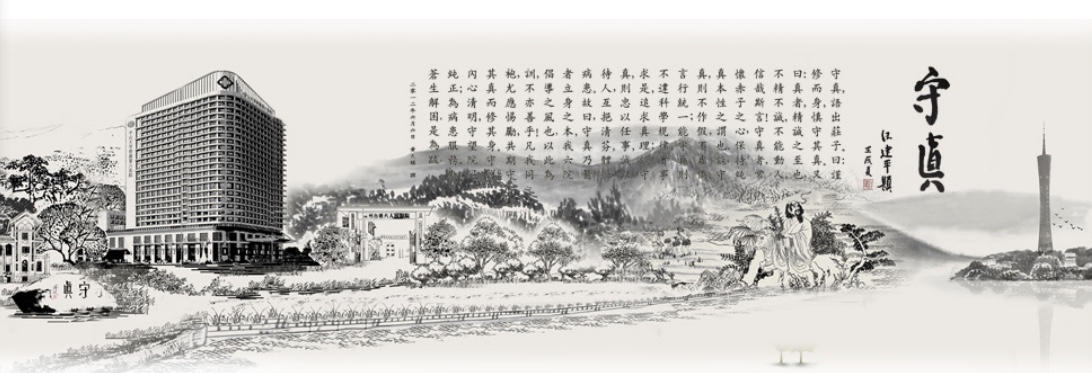 守眞
汪建平題
壬辰夏
守真,語出莊子。曰:謹
修而身,慎守其真。又
曰:真者,精誠之至也,
不精不誠,不能動人。
信哉斯言!守真者,常
懷赤子之心,保持純
真本性之謂也。能守
真,則不作假,有虛
言行統一;能守則
不違科學規律,事
求是,追求真理;守
真,則忠以任事,誠
待人,互挹清芬,體
病患。故曰:守真乃醫
者立身之本,我六院
倡導之風也。以此為
訓,不亦善乎!凡我同
袍,尤應惕勵,共期守
其真而修其身,守
內心清明,守望院
純正,為病患服務,
蒼生解困。是為跋。
二零一二年六月六日
守眞